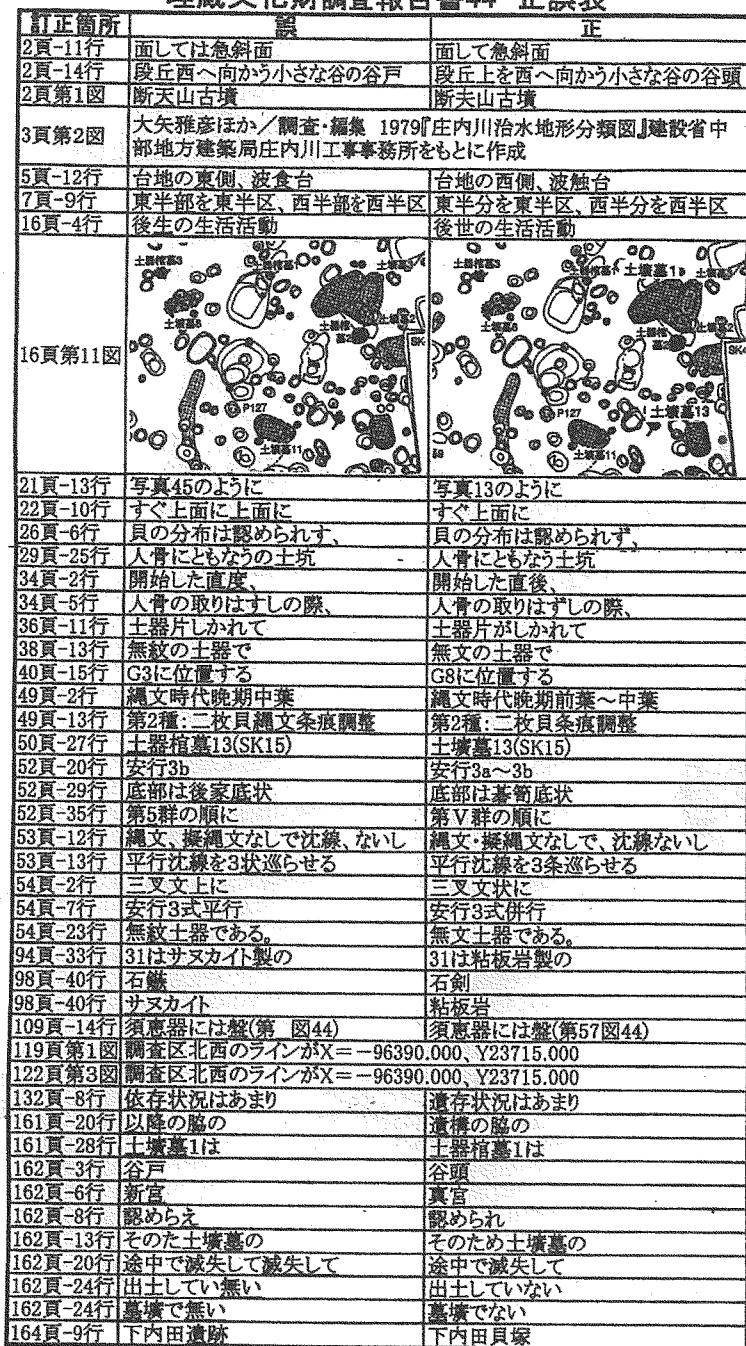 埋蔵文化財調査報告書44 正誤表
訂正箇所 誤 正
2頁-11行 面しては急斜面 面して急斜面
2頁-14行 段丘西へ向かう小さな谷の谷戸 段丘上を西へ向かう小さな谷の谷頭
2頁第1図 断天山古墳 断夫山古墳
3頁第2図 大矢雅彦ほか/調査・編集 1979『庄内川治水地形分類図』建設省中
部地方建築局庄内川工事事務所をもとに作成
5頁-12行 台地の東側、波食台 台地の西側、波触台
7頁-9行 東半部を東半区、西半部を西半区 東半分を東半区、西半分を西半区
16頁-4行 後生の生活活動 後世の生活活動
16頁第11図
土器棺墓3 土器棺墓1 土壙墓3
土壙墓8 土器棺 土壙墓2
墓2 SK
P127
土壙墓11
土器棺墓3 土器棺墓1 土壙墓1
土壙墓8 土器棺 土壙墓2
墓2 SK
P127 土壙墓13
土壙墓11
21頁-13行 写真45のように 写真13のように
22頁-10行 すぐ上面に上面に すぐ上面に
26頁-6行 貝の分布は認められす、 貝の分布は認められず、
29頁-25行 人骨にともなうの土坑 人骨にともなう土坑
34頁-2行 開始した直度、 開始した直後、
34頁-5行 人骨の取りはすしの際、 人骨の取りはずしの際、
36頁-11行 土器片しかれて 土器片がしかれて
38頁-13行 無紋の土器で 無文の土器で
40頁-15行 G3に位置する G8に位置する
49頁-2行 縄文時代晩期中葉 縄文時代晩期前葉～中葉
49頁-13行 第2種:二枚貝縄文条痕調整 第2種:二枚貝条痕調整
50頁-27行 土器棺墓13(SK15) 土壙墓13(SK15)
52頁-20行 安行3b 安行3a～3b
52頁-29行 底部は後家底状 底部は碁笥底状
52頁-35行 第5群の順に 第Ⅴ群の順に
53頁-12行 縄文、擬縄文なしで沈線、ないし 縄文・擬縄文なしで、沈線ないし
53頁-13行 平行沈線を3状巡らせる 平行沈線を3条巡らせる
54頁-2行 三叉文上に 三叉文状に
54頁-7行 安行3式平行 安行3式併行
54頁-23行 無紋土器である。 無文土器である。
94頁-33行 31はサヌカイト製の 31は粘板岩製の
98頁-40行 石鏃 石剣
98頁-40行 サヌカイト 粘板岩
109頁-14行 須恵器には盤(第 図44) 須恵器には盤(第57図44)
119頁第1図 調査区北西のラインがX=-96390.000、Y23715.000
122頁第3図 調査区北西のラインがX=-96390.000、Y23715.000
132頁-8行 依存状況はあまり 遺存状況はあまり
161頁-20行 以降の脇の 遺構の脇の
161頁-28行 土壙墓1は 土器棺墓1は
162頁-3行 谷戸 谷頭
162頁-6行 新宮 真宮
162頁-8行 認めらえ 認められ
162頁-13行 そのた土壙墓の そのため土壙墓の
162頁-20行 途中で滅失して滅失して 途中で滅失して
162頁-24行 出土してい無い 出土していない
162頁-24行 墓壙で無い 墓壙でない
164頁-9行 下内田遺跡 下内田貝塚